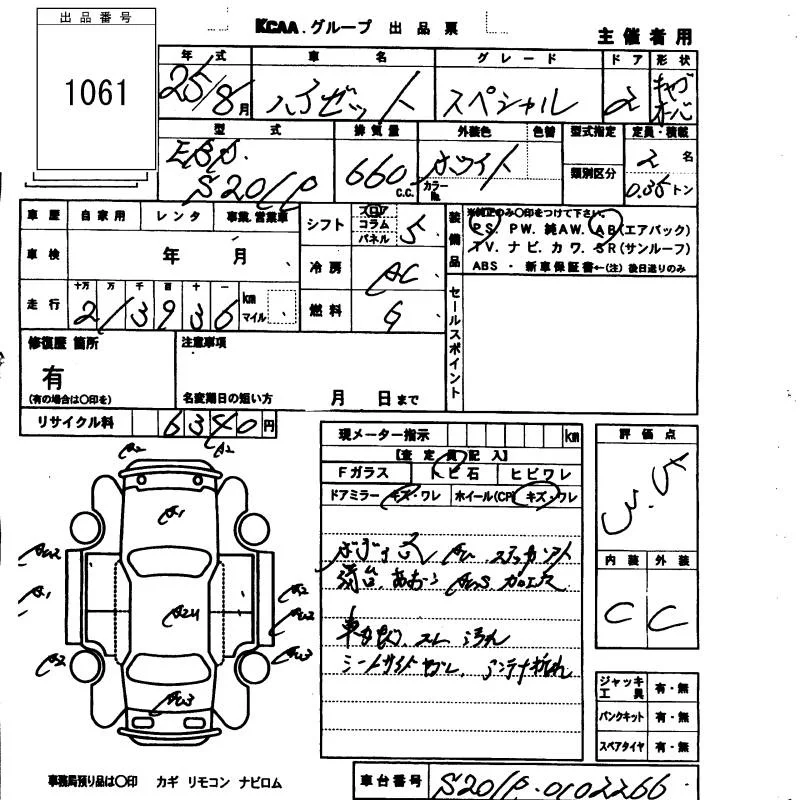 出品番号
1061
KCAA.グループ 出品票
主催者用
年式 車名 グレード ドア 形状
25/8月 ハイゼット スペシャル 2 キャブオーバ
型式 排気量 外装色 色替 型式指定 定員・積載
EBD. 660 c.c. ホワイト カラーNo. 類別区分 2名
S201P 0.35トン
車歴 自家用 レンタ 事業.営業車
車検 年 月
走行 十万 万 千 百 十 一
213936 km マイル
シフト フロア コラム パネル 5
冷房 AC
燃料 G
装備品
※純正のみ○印をつけて下さい。
PS. PW. 純AW. AB(エアバック)
TV. ナビ. カワ. SR(サンルーフ)
ABS ・ 新車保証書←(注) 後日送りのみ
セールスポイント
修復歴 箇所
有
(有の場合は○印を)
注意事項
名変期日の短い方 月 日まで
リサイクル料 6340円
現メーター指示 km
【査定員記入】
Fガラス トビ石 ヒビワレ
ドアミラー キズ・ワレ ホイール(CP) キズ・ワレ
車内 スレ 汚れ
シートサイドヤブレ、アンテナ折れ
評価点
3.5
内装 外装
C C
ジャッキ工具 有・無
パンクキット 有・無
スペアタイヤ 有・無
A2
A2
A1
AU2
A1
A2
A2
AU3
AU3
事務局預り品は○印 カギ リモコン ナビロム
車台番号 S201P-0102266